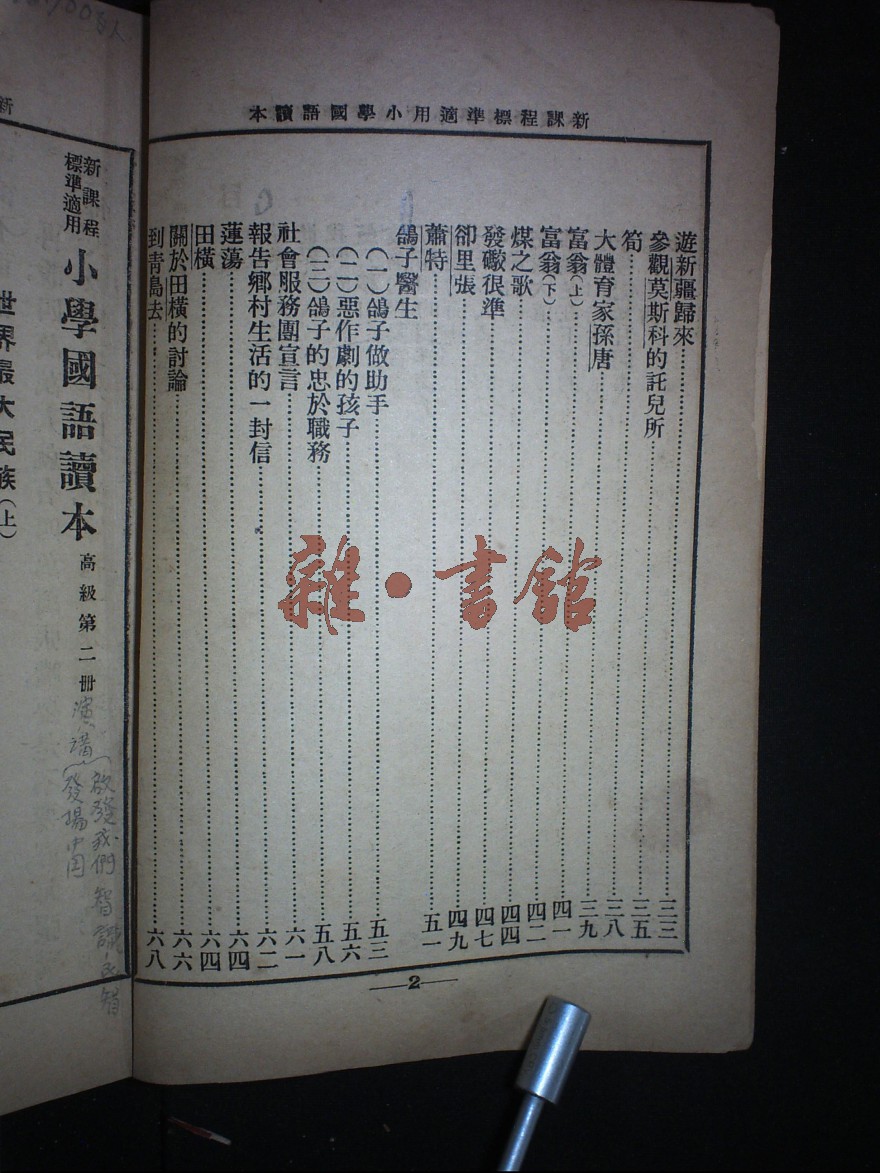 新課程標準適用小學國語讀本
遊新疆歸來……三三
參觀莫斯科的託兒所……三五
筍……三八
大體育家孫唐……三九
富翁(上)……四一
富翁(下)……四二
煤之歌……四四
發礮很準……四七
卻里張……四九
蕭特……五一
鴿子醫生
(一)鴿子做助手……五三
(二)惡作劇的孩子……五六
(三)鴿子的忠於職務……五八
社會服務團宣言……六一
報告鄉村生活的一封信……六二
蓮蕩……六四
田橫……六四
關於田橫的討論……六六
到青島去……六八
2
雜·書館
新
新課程標準適用
小學國語讀本
高級第二冊
啟發我們智識
發揚
世界最大民族(上)